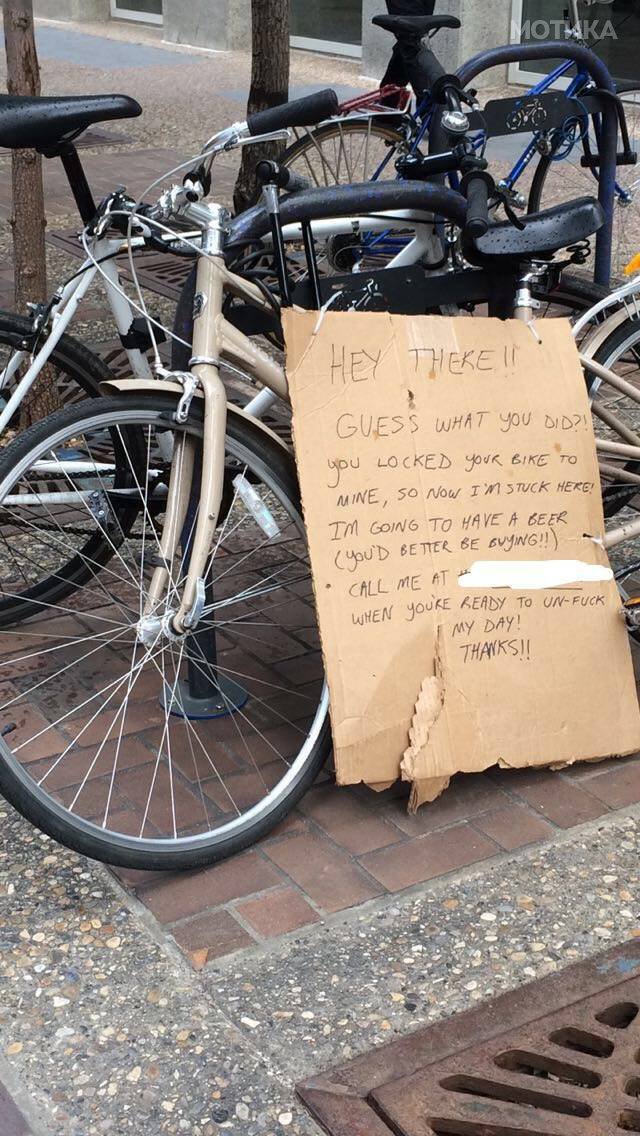 МОТИКА
HEY THERE!!
GUESS WHAT YOU DID?!
YOU LOCKED YOUR BIKE TO
MINE, SO NOW I'M STUCK HERE!
I'M GOING TO HAVE A BEER
(YOU'D BETTER BE BUYING!!)
CALL ME AT
WHEN YOU'RE READY TO UN-FUCK
MY DAY!
THANKS!!